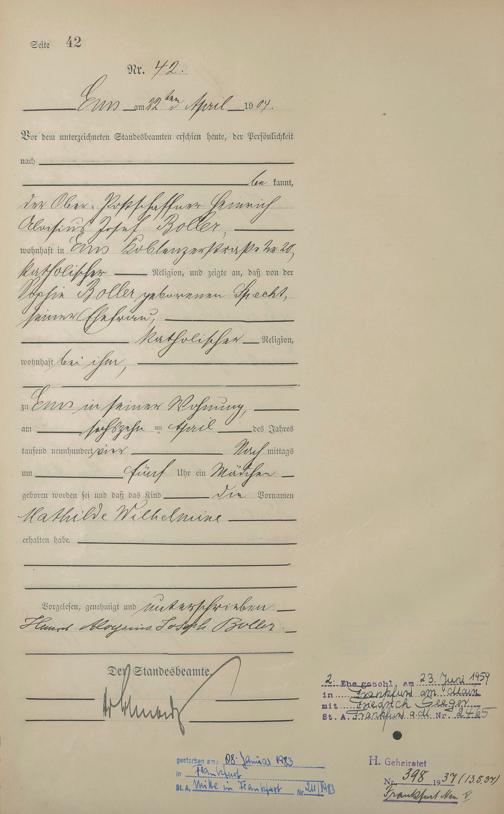 Seite 42
Nr. 42.
Ems am 22ten April 1904.
Vor dem unterzeichneten Standesbeamten erschien heute, der Persönlichkeit
nach
be kannt,
der Ober-Postschaffner Heinrich
Aloisius Josef Boller,
wohnhaft in Ems Koblenzerstraße No 20,
katholischer Religion, und zeigte an, daß von der
Sophie Boller geborenen Specht,
seiner Ehefrau,
katholischer Religion,
wohnhaft bei ihm,
zu Ems in seiner Wohnung,
am sechszehn ten April des Jahres
tausend neunhundert vier Nach mittags
um fünf Uhr ein Mädchen
geboren worden sei und daß das Kind die Vornamen
Mathilde Wilhelmine
erhalten habe.
Vorgelesen, genehmigt und unterschrieben
Aloysius Joseph Boller
Der Standesbeamte.
2. Ehe geschl. am 23. Juni 1959
in Frankfurt am Main
mit Friedrich
St. A. Frankfurt a. M. Nr.
gestorben am 08. Januar 1983
in Frankfurt
St. A. Mitte in Frankfurt Nr.
H. Geheiratet
Nr. 398 1937 (13.5.37)
Frankfurt